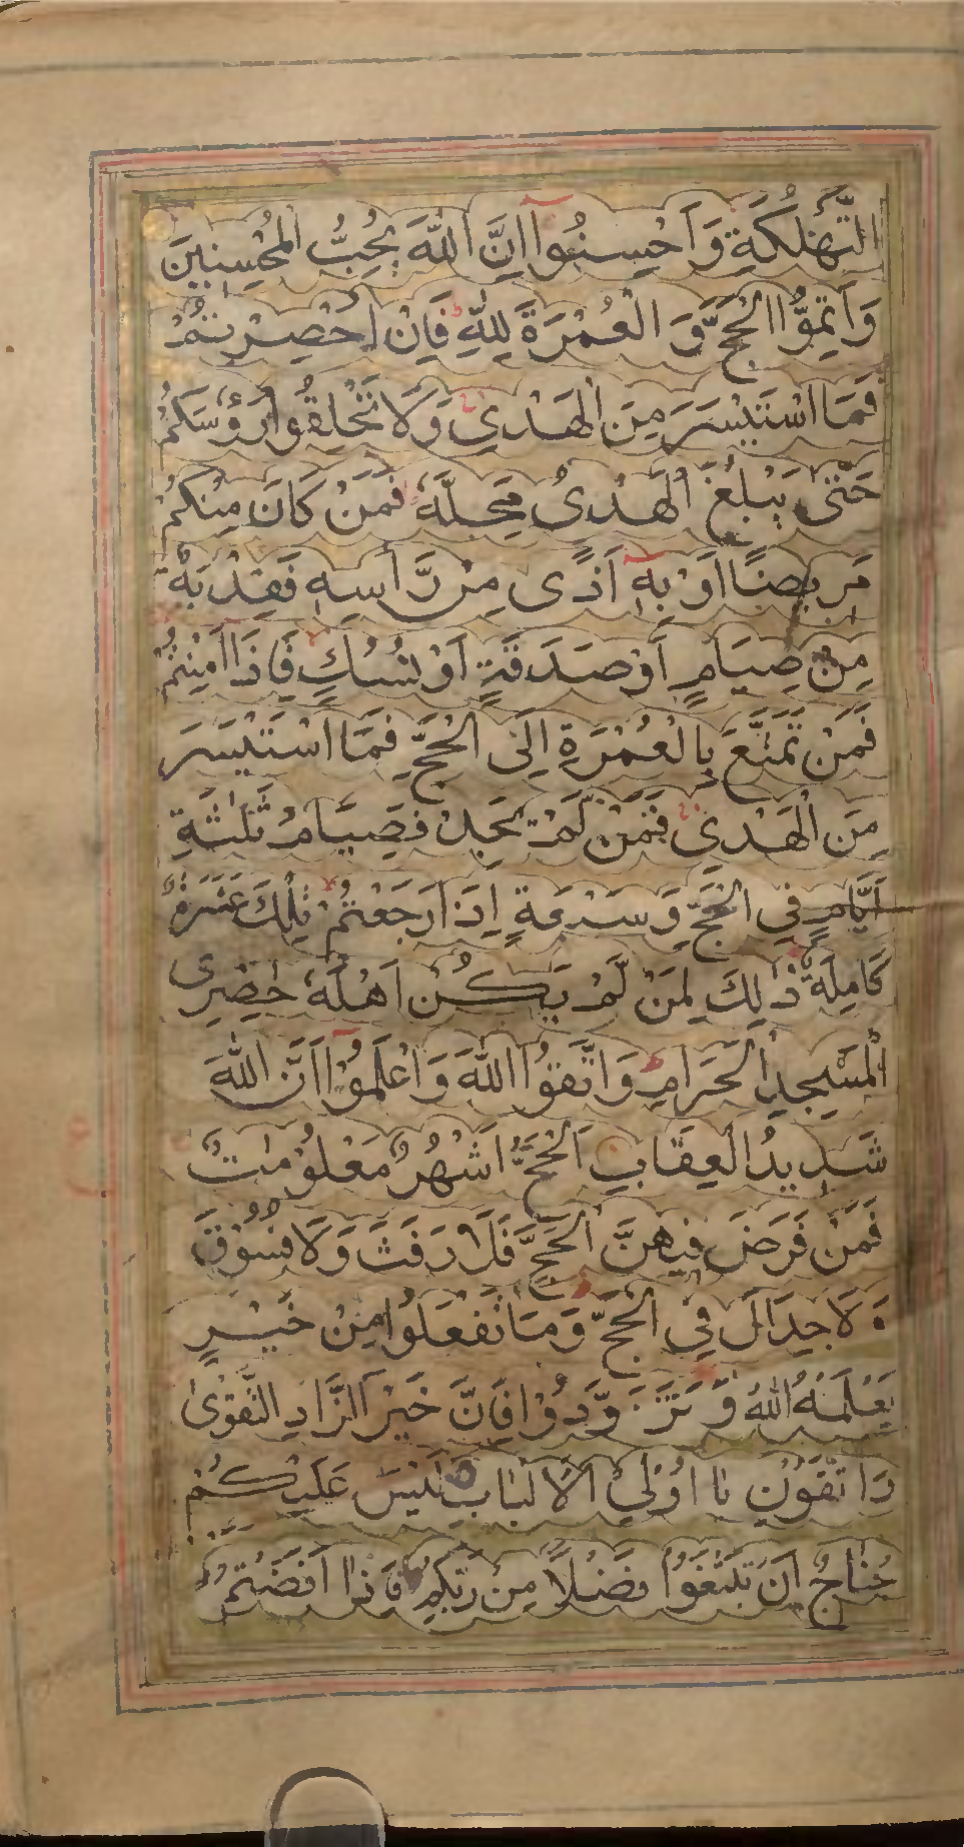 التَّهْلُكَةِ وَاَحْسِنُوا اِنَّ اللّٰهَ يُحِبُّ الْمُحْسِنِينَ
وَاَتِمُّوا الْحَجَّ وَ الْعُمْرَةَ لِلّٰهِ فَاِنْ اُحْصِرْتُمْ
فَمَا اسْتَيْسَرَ مِنَ الْهَدْيِ وَلَا تَحْلِقُوا رُؤُسَكُمْ
حَتّٰى يَبْلُغَ الْهَدْىُ مَحِلَّهٗ فَمَنْ كَانَ مِنْكُمْ
مَرِيضًا اَوْ بِهٖ اَذًى مِنْ رَّأْسِهٖ فَفِدْيَةٌ
مِنْ صِيَامٍ اَوْ صَدَقَةٍ اَوْ نُسُكٍ فَاِذَا اَمِنْتُمْ
فَمَنْ تَمَتَّعَ بِالْعُمْرَةِ اِلَى الْحَجِّ فَمَا اسْتَيْسَرَ
مِنَ الْهَدْيِ فَمَنْ لَمْ يَجِدْ فَصِيَامُ ثَلٰثَةِ
اَيَّامٍ فِي الْحَجِّ وَ سَبْعَةٍ اِذَا رَجَعْتُمْ تِلْكَ عَشَرَةٌ
كَامِلَةٌ ذٰلِكَ لِمَنْ لَّمْ يَكُنْ اَهْلُهٗ حٰضِرِى
الْمَسْجِدِ الْحَرَامِ وَاتَّقُوا اللّٰهَ وَاعْلَمُوْا اَنَّ اللّٰهَ
شَدِيدُ الْعِقَابِ اَلْحَجُّ اَشْهُرٌ مَعْلُوْمٰتٌ
فَمَنْ فَرَضَ فِيهِنَّ الْحَجَّ فَلَا رَفَثَ وَلَا فُسُوْقَ
وَ لَا جِدَالَ فِي الْحَجِّ وَمَا تَفْعَلُوا مِنْ خَيْرٍ
يَعْلَمْهُ اللّٰهُ وَ تَزَوَّدُوْا فَاِنَّ خَيْرَ الزَّادِ التَّقْوٰى
وَاتَّقُوْنِ يَا اُوْلِي الْاَلْبَابِ لَيْسَ عَلَيْكُمْ
جُنَاحٌ اَنْ تَبْتَغُوْا فَضْلًا مِنْ رَّبِّكُمْ فَاِذَا اَفَضْتُمْ